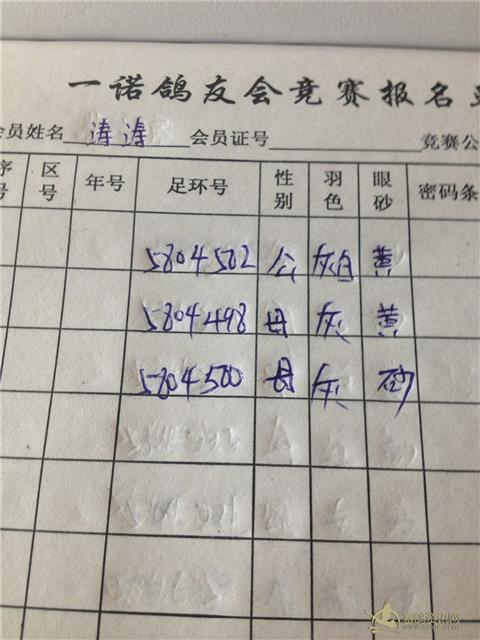 一诺鸽友会竞赛报名
会员姓名 涛涛 会员证号 竞赛公
序号 区号 年号 足环号 性别 羽色 眼砂 密码条
5804502 公 灰白 黄
5804498 母 灰 黄
5804500 母 灰 砂